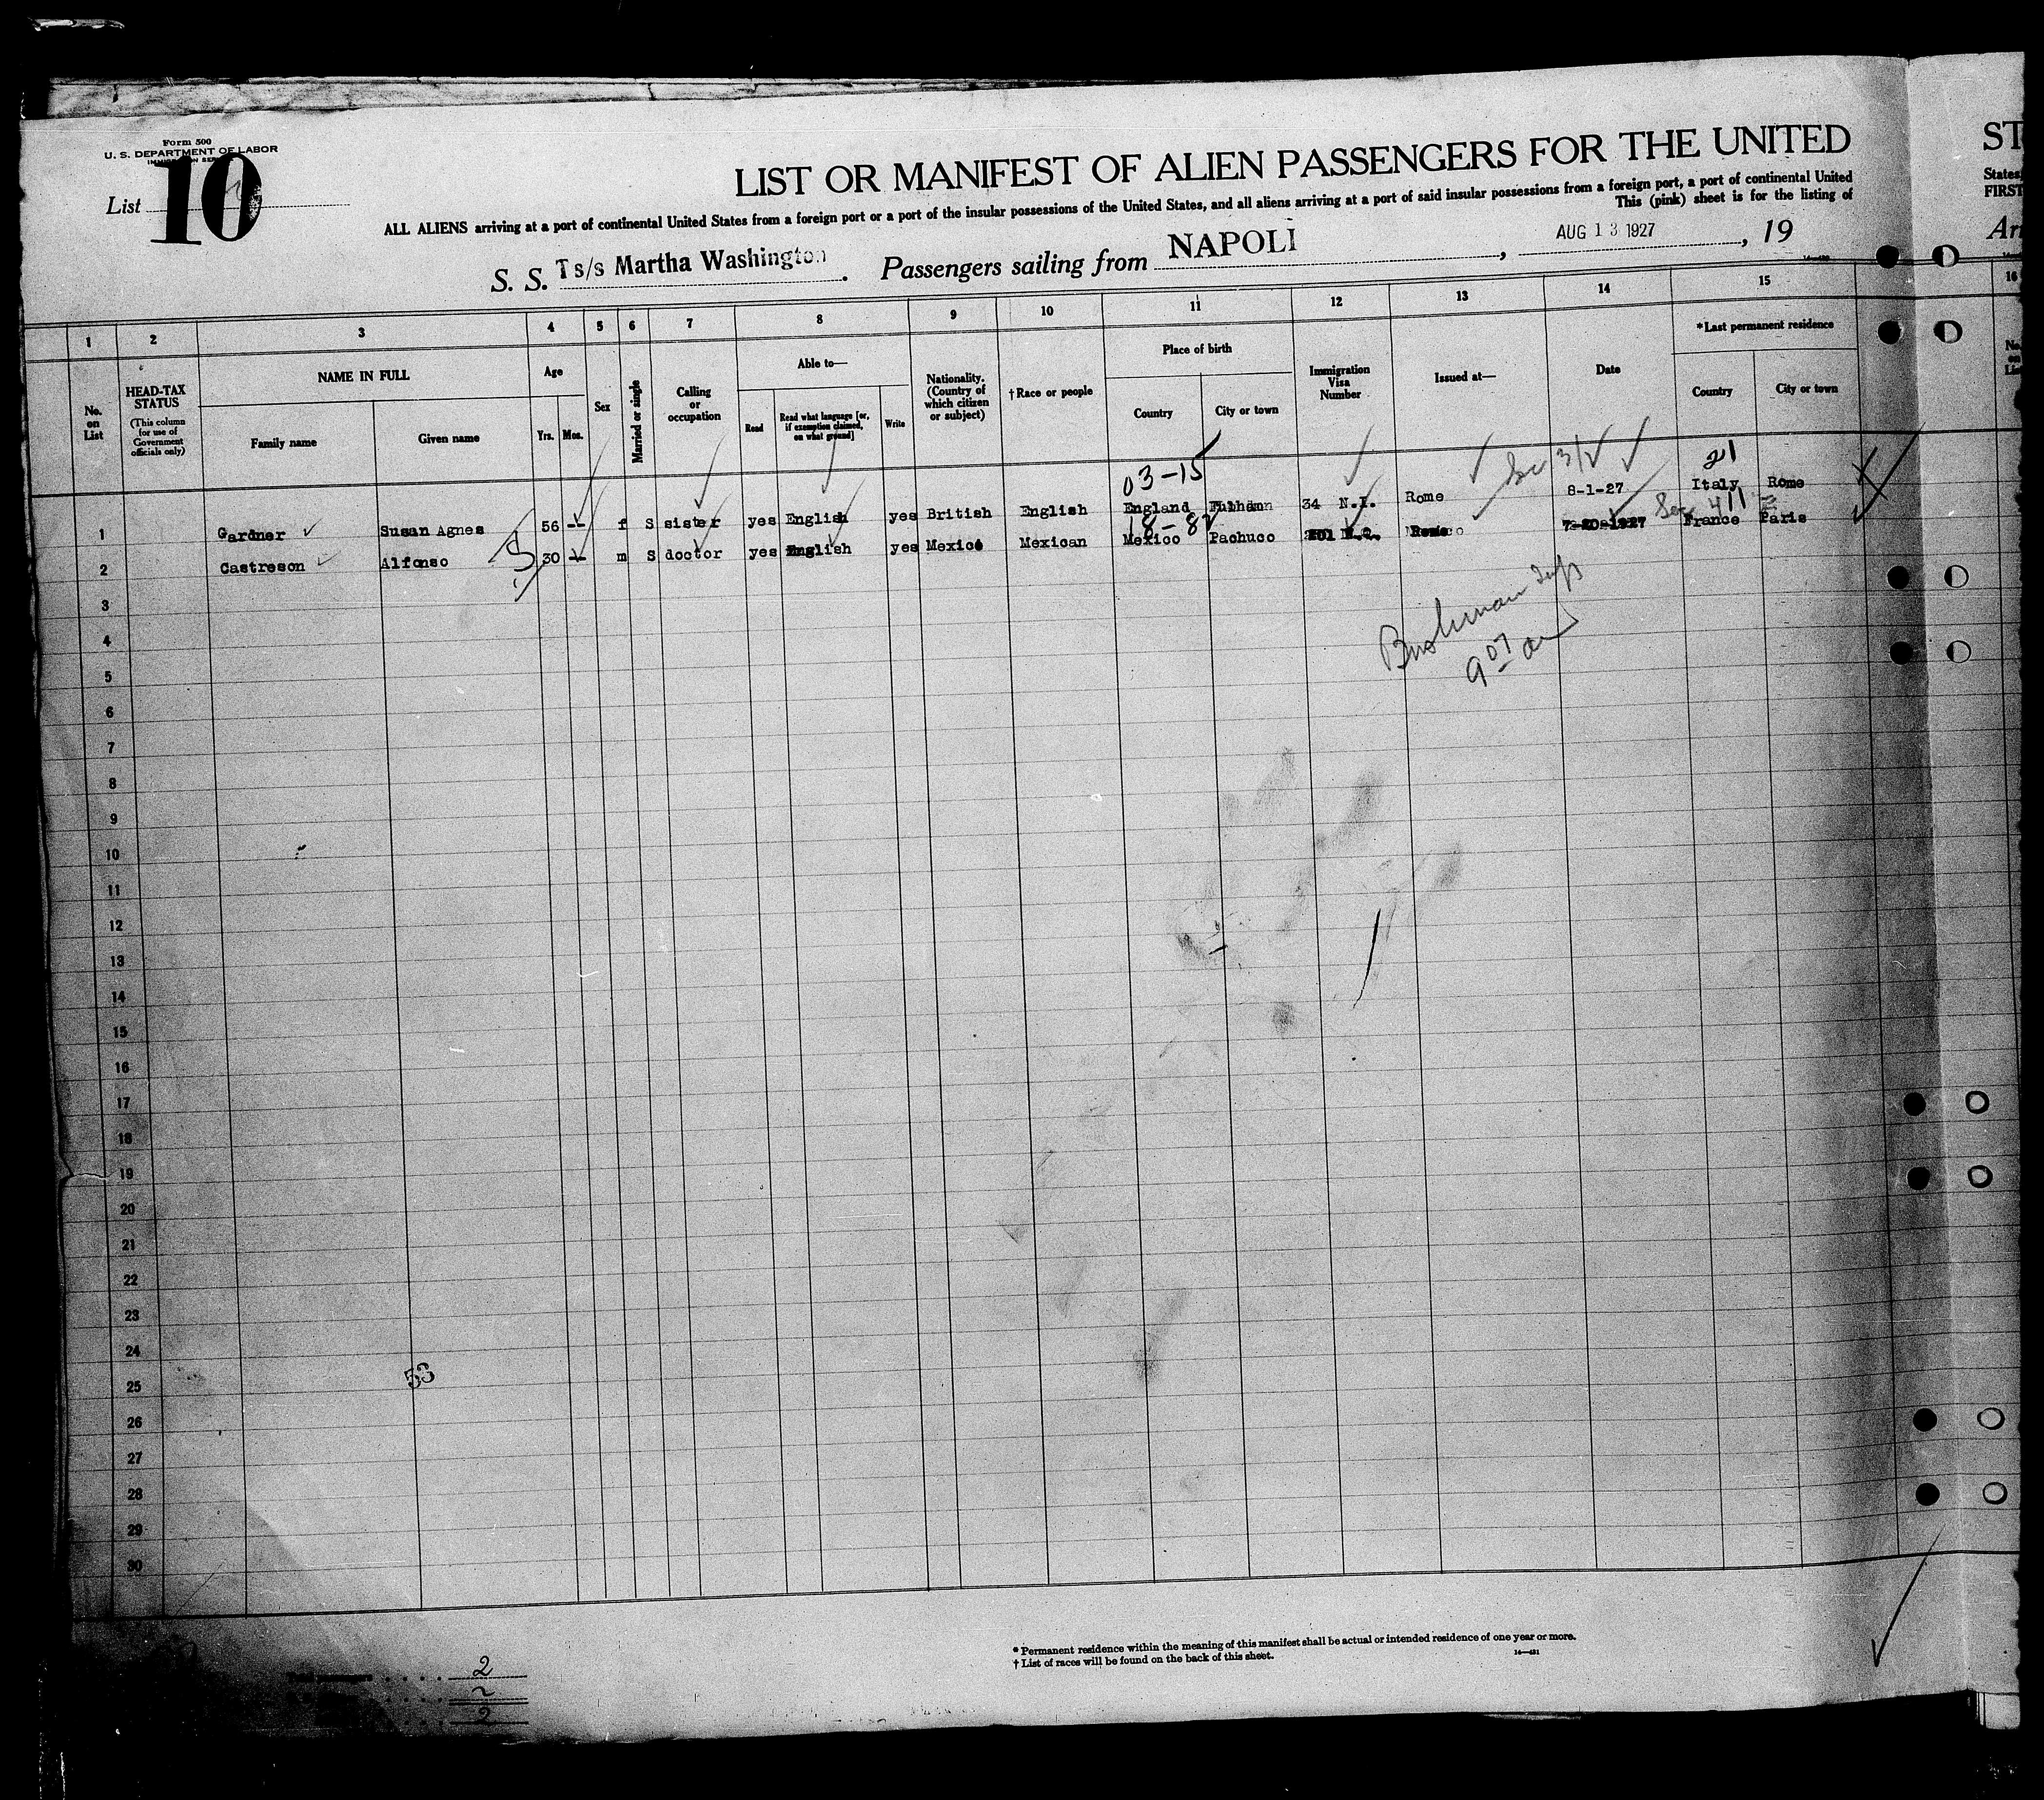 Form 500
U. S. DEPARTMENT OF LABOR
List 10
LIST OR MANIFEST OF ALIEN PASSENGERS FOR THE UNITED
ST
ALL ALIENS arriving at a port of continental United States from a foreign port or a port of the insular possessions of the United States, and all aliens arriving at a port of said insular possessions from a foreign port, a port of continental United
States,
This (pink) sheet is for the listing of
FIRST
S. S. Ts/s Martha Washington. Passengers sailing from NAPOLI, AUG 13 1927, 19
Arr
1 2 3 4 5 6 7 8 9 10 11 12 13 14 15 16
No. on List
HEAD-TAX STATUS
(This column for use of Government officials only)
NAME IN FULL
Family name
Given name
Age
Yrs. Mos.
Sex
Married or single
Calling or occupation
Able to—
Read
Read what language [or, if exemption claimed, on what ground]
Write
Nationality. (Country of which citizen or subject)
†Race or people
Place of birth
Country
City or town
Immigration Visa Number
Issued at—
Date
*Last permanent residence
Country
City or town
No. on List
03-15 21
1 Gardner Susan Agnes 56 -- f S sister yes English yes British English England 34 N.I. Rome 8-1-27 Italy Rome
18-8
2 Castreson Alfonso 30 -- m S doctor yes English yes Mexico Mexican Mexico Pachuco 7-20-1927 France Paris
3
4
5
6
7
8
9
10
11
12
13
14
15
16
17
18
19
20
21
22
23
24
25
26
27
28
29
30
53
2
2
* Permanent residence within the meaning of this manifest shall be actual or intended residence of one year or more.
† List of races will be found on the back of this sheet.
14—431